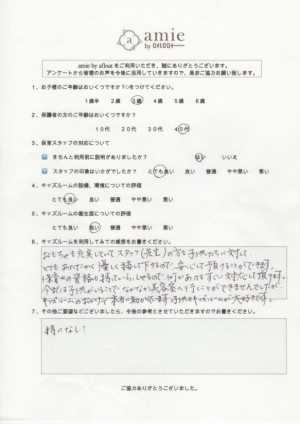 a amie
by afloat
amie by afloat をご利用いただき、誠にありがとうございます。
アンケートから皆様のお声を今後に活用していきますので、是非ご協力お願い致します。
1、お子様のご年齢はおいくつですか?○をつけてください。
1歳半 2歳 3歳 4歳 5歳 6歳
2、保護者の方のご年齢はおいくつですか?
10代 20代 30代 40代
3、保育スタッフの対応について
きちんと利用前に説明がありましたか? はい いいえ
スタッフの印象はいかがでしたか? とても良い 良い 普通 やや悪い 悪い
4、キッズルームの設備、環境についての評価
とても良い 良い 普通 やや悪い 悪い
5、キッズルームの衛生面についての評価
とても良い 良い 普通 やや悪い 悪い
6、キッズルームを利用してみての感想をお書きください。
おもちゃも充実していてスタッフ(先生)の方も子供たちに対して、
とてもあたたかく優しく接して下さるので、安心して預けることができます。
保育士の資格も持っていらっしゃるので、何かあってもすぐに対応して頂けます。
今までは子供がいることでなかなか美容室へ行くことができませんでしたが、
キッズルームのおかげで本当に助かっています。子供もキッズルームが大好きです。
7、その他ご要望などございましたら、今後の参考とさせていただきますのでお書きください。
特になし!
ご協力ありがとうございました。